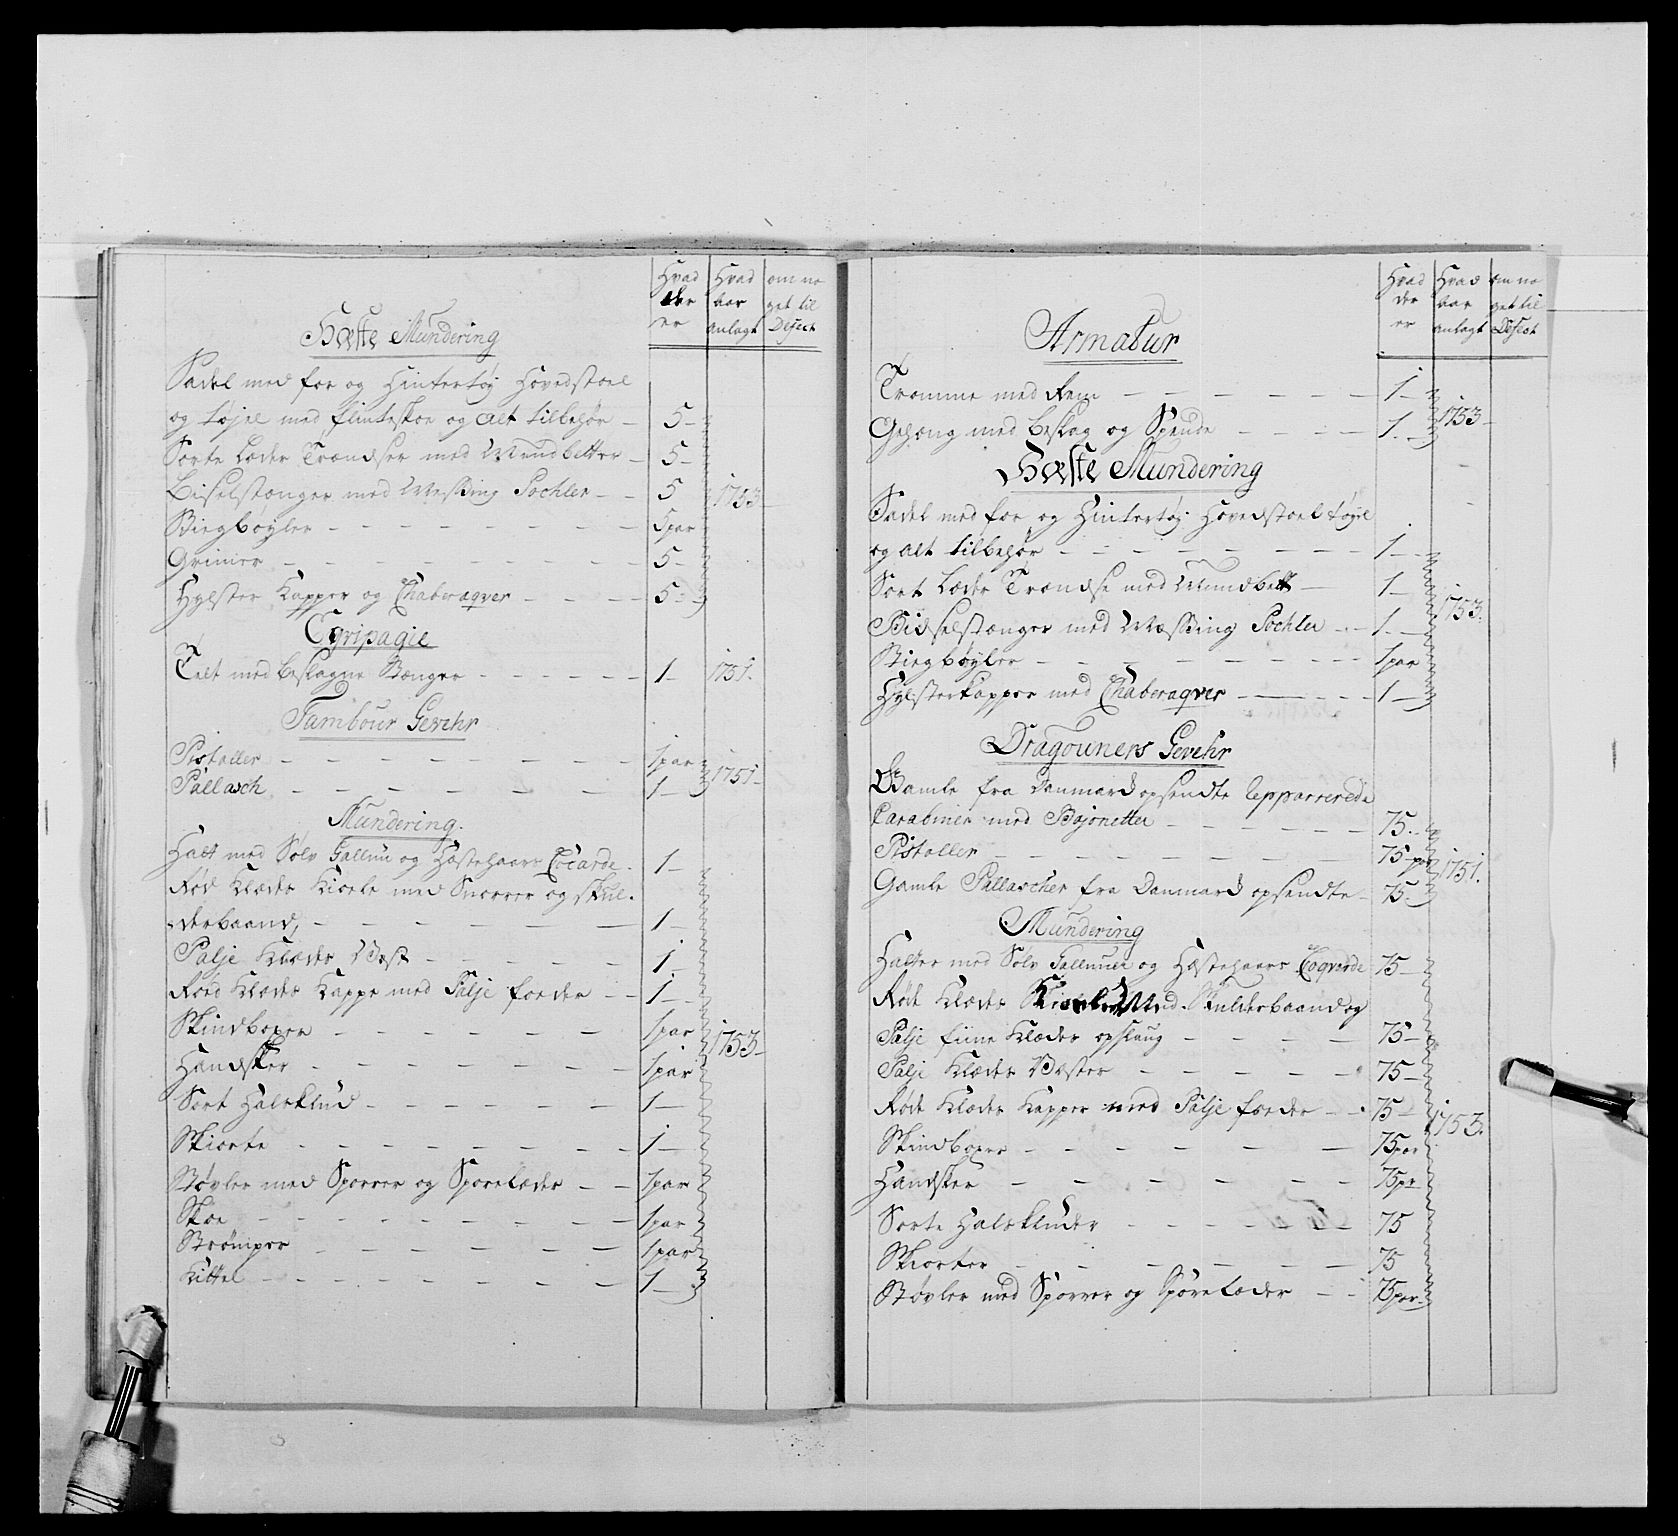 Hvad der er | Hvad aar anlagt | om noget til Defect
Hæste Mundering
Sadel med for og Hintertøj Hovedstoel
og tøjel med flinteskoe og alt tilbehør 5
Sorte Læder Trændser med Mundbetter 5
Bidselstænger med Messing Pochler 5 1753
Stiegbøyler 5 par
Grimer 5
Hylster Kapper og Chaberaqver 5
Eqvipagie
Telt med beslagne Stænger 1 1751.
Tambour Gevehr
Pistoller 1 par 1751
Pallasch 1
Mundering.
Hatt med Sølv Gallun og Hæstehaars Cocarde 1
Rød Klædes Kiole med Snorrer og skul-
derbaand, 1
Palje Klædes Vest 1
Rød Klædes Kappe med Palje foeder 1
Skindboxer 1 par 1753
Handsker 1 par
Sort Halsklud 1
Skiorte 1
Støvler med Sporrer og Sporelæder 1 par
Skoe 1 par
Strømper 1 par
Kittel 1
Hvad der er | Hvad aar anlagt | om noget til Defect
Armatur
Tromme med Rem 1 1753
Gehæng med Beslag og Spende 1
Hæste Mundering
Sadel med for og Hintertøj Hovedstoel tøjel
og alt tilbehør 1
Sort Læder Trændse med Mundbett 1
Bidselstænger med Messing Pochler 1 1753.
Stiegbøyler 1 par
Hylsterkapper med Chaberaqver 1
Dragouners Gevehr
Gamle fra Danmark opsendte Repparerede
Carabiner med Bajonetter 75
Pistoller 75 par 1751.
Gamle Pallascher fra Danmark opsendte 75
Mundering
Hatter med Sølv Galluner og Hæstehaars Coqvarde 75
Røde Klædes Kioler Med Skulderbaand og
Palje fiine Klædes opslaug 75
Palje Klædes Væster 75
Røde Klædes Kapper med Palje foeder 75 1753.
Skindboxer 75 par
Handsker 75 pr
Sorte Halskluder 75
Skiorter 75
Støvler med Sporrer og Sporelæder 75 par